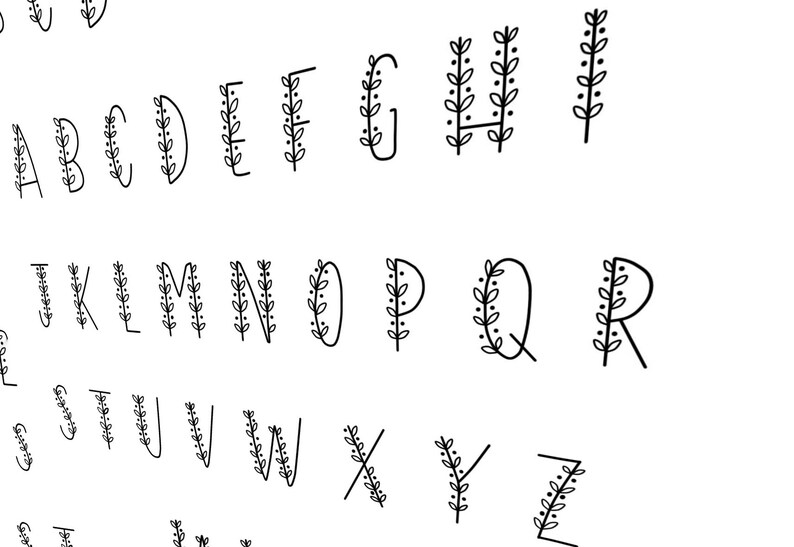 C D
A B C D E F G H I
J K L M N O P Q R
S T U V W X Y Z